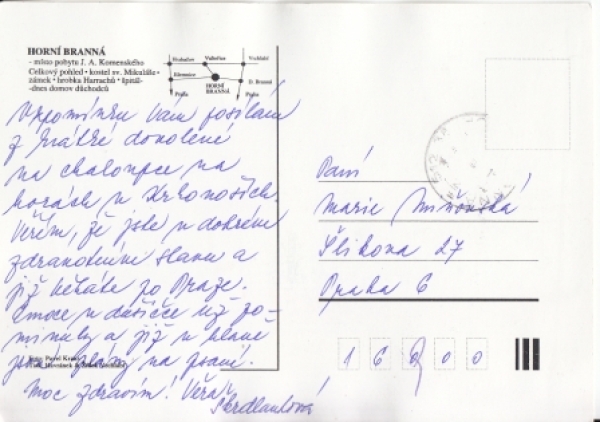 HORNÍ BRANNÁ
- místo pobytu J. A. Komenského
Celkový pohled • kostel sv. Mikuláše •
zámek • hrobka Harrachů • špitál-
-dnes domov důchodců
Valteřice
Vrchlabí
Jilemnice
HORNÍ
BRANNÁ
D. Branná
Praha
Praha
Vzpomínku Vám posílám
z krátké dovolené
na chaloupce na
horách v Krkonoších.
Věřím, že jste v dobrém
zdravotním stavu a
již běháte po Praze.
Emoce v dušičce už po-
minuly a již v hlavě
jsou plány na psaní.
Moc zdravím! Věra
Skrdlantová
Foto: Pavel
Paní
Marie
Šlikova 27
Praha 6
1 6 9 0 0